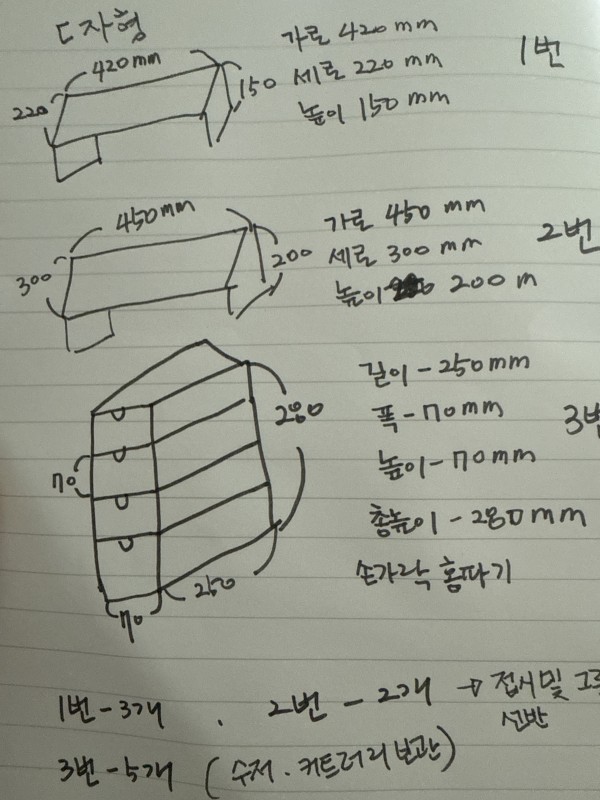 ㄷ자형
420mm
220
150
가로 420mm
세로 220 mm
높이 150 mm
1번
450mm
300
200
가로 450 mm
세로 300 mm
높이 200 m
2번
280
70
250
70
길이 - 250mm
폭 - 70mm
높이 - 70mm
총높이 - 280mm
손가락 홈파기
3번
1번 - 3개 . 2번 - 2개 → 접시 및
선반
3번 - 5개 (수저 . 커트러리 보관)